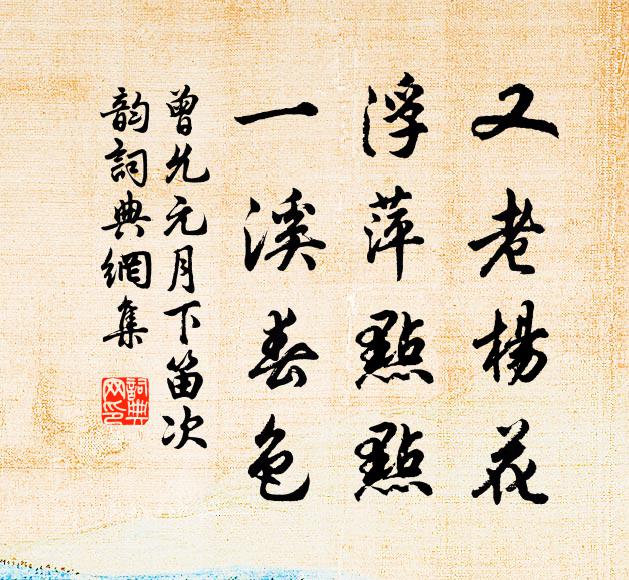 又老楊花
浮萍點點
一溪春色
曾允元月下笛次
韵詞典網集
詞典網印